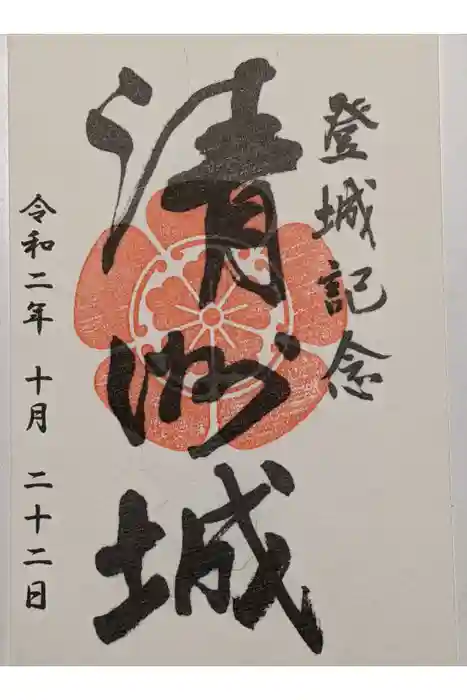 登城記念
清洲城
令和二年 十月 二十二日